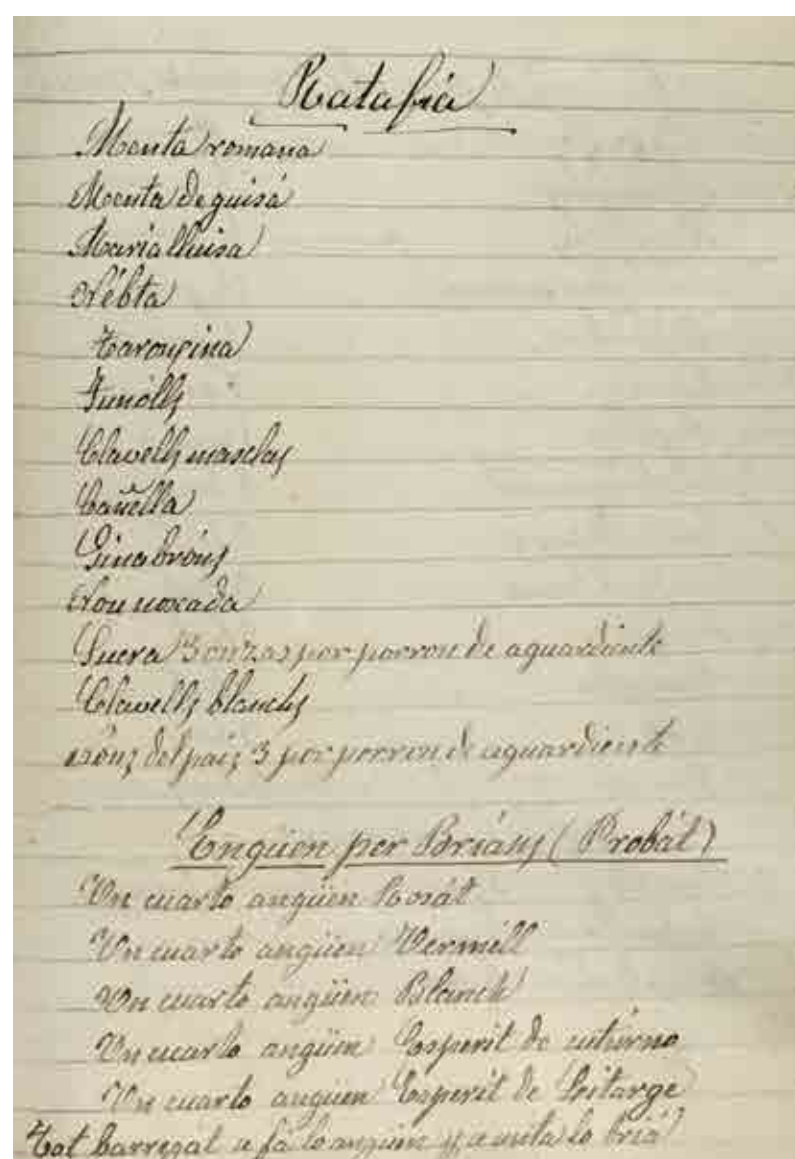 Ratafia
Menta romana
Menta de guisá
Maria lluisa
Nébta
Tarongina
Funólls
Clavells masclas
Cañella
Ginabróns
Nou noscada
Sucra 3 onzas por porron de aguardiente
Clavells blanchs
nóus del pais 3 por porron de aguardiente
Engüen per Brians (Probát)
Un cuarto angüen Rosát
Un cuarto angüen Vermill
Un cuarto angüen Blanch
Un cuarto angüen Esperit de
Un cuarto angüen Esperit de Litarge
Tot barregat se fá lo angüen y